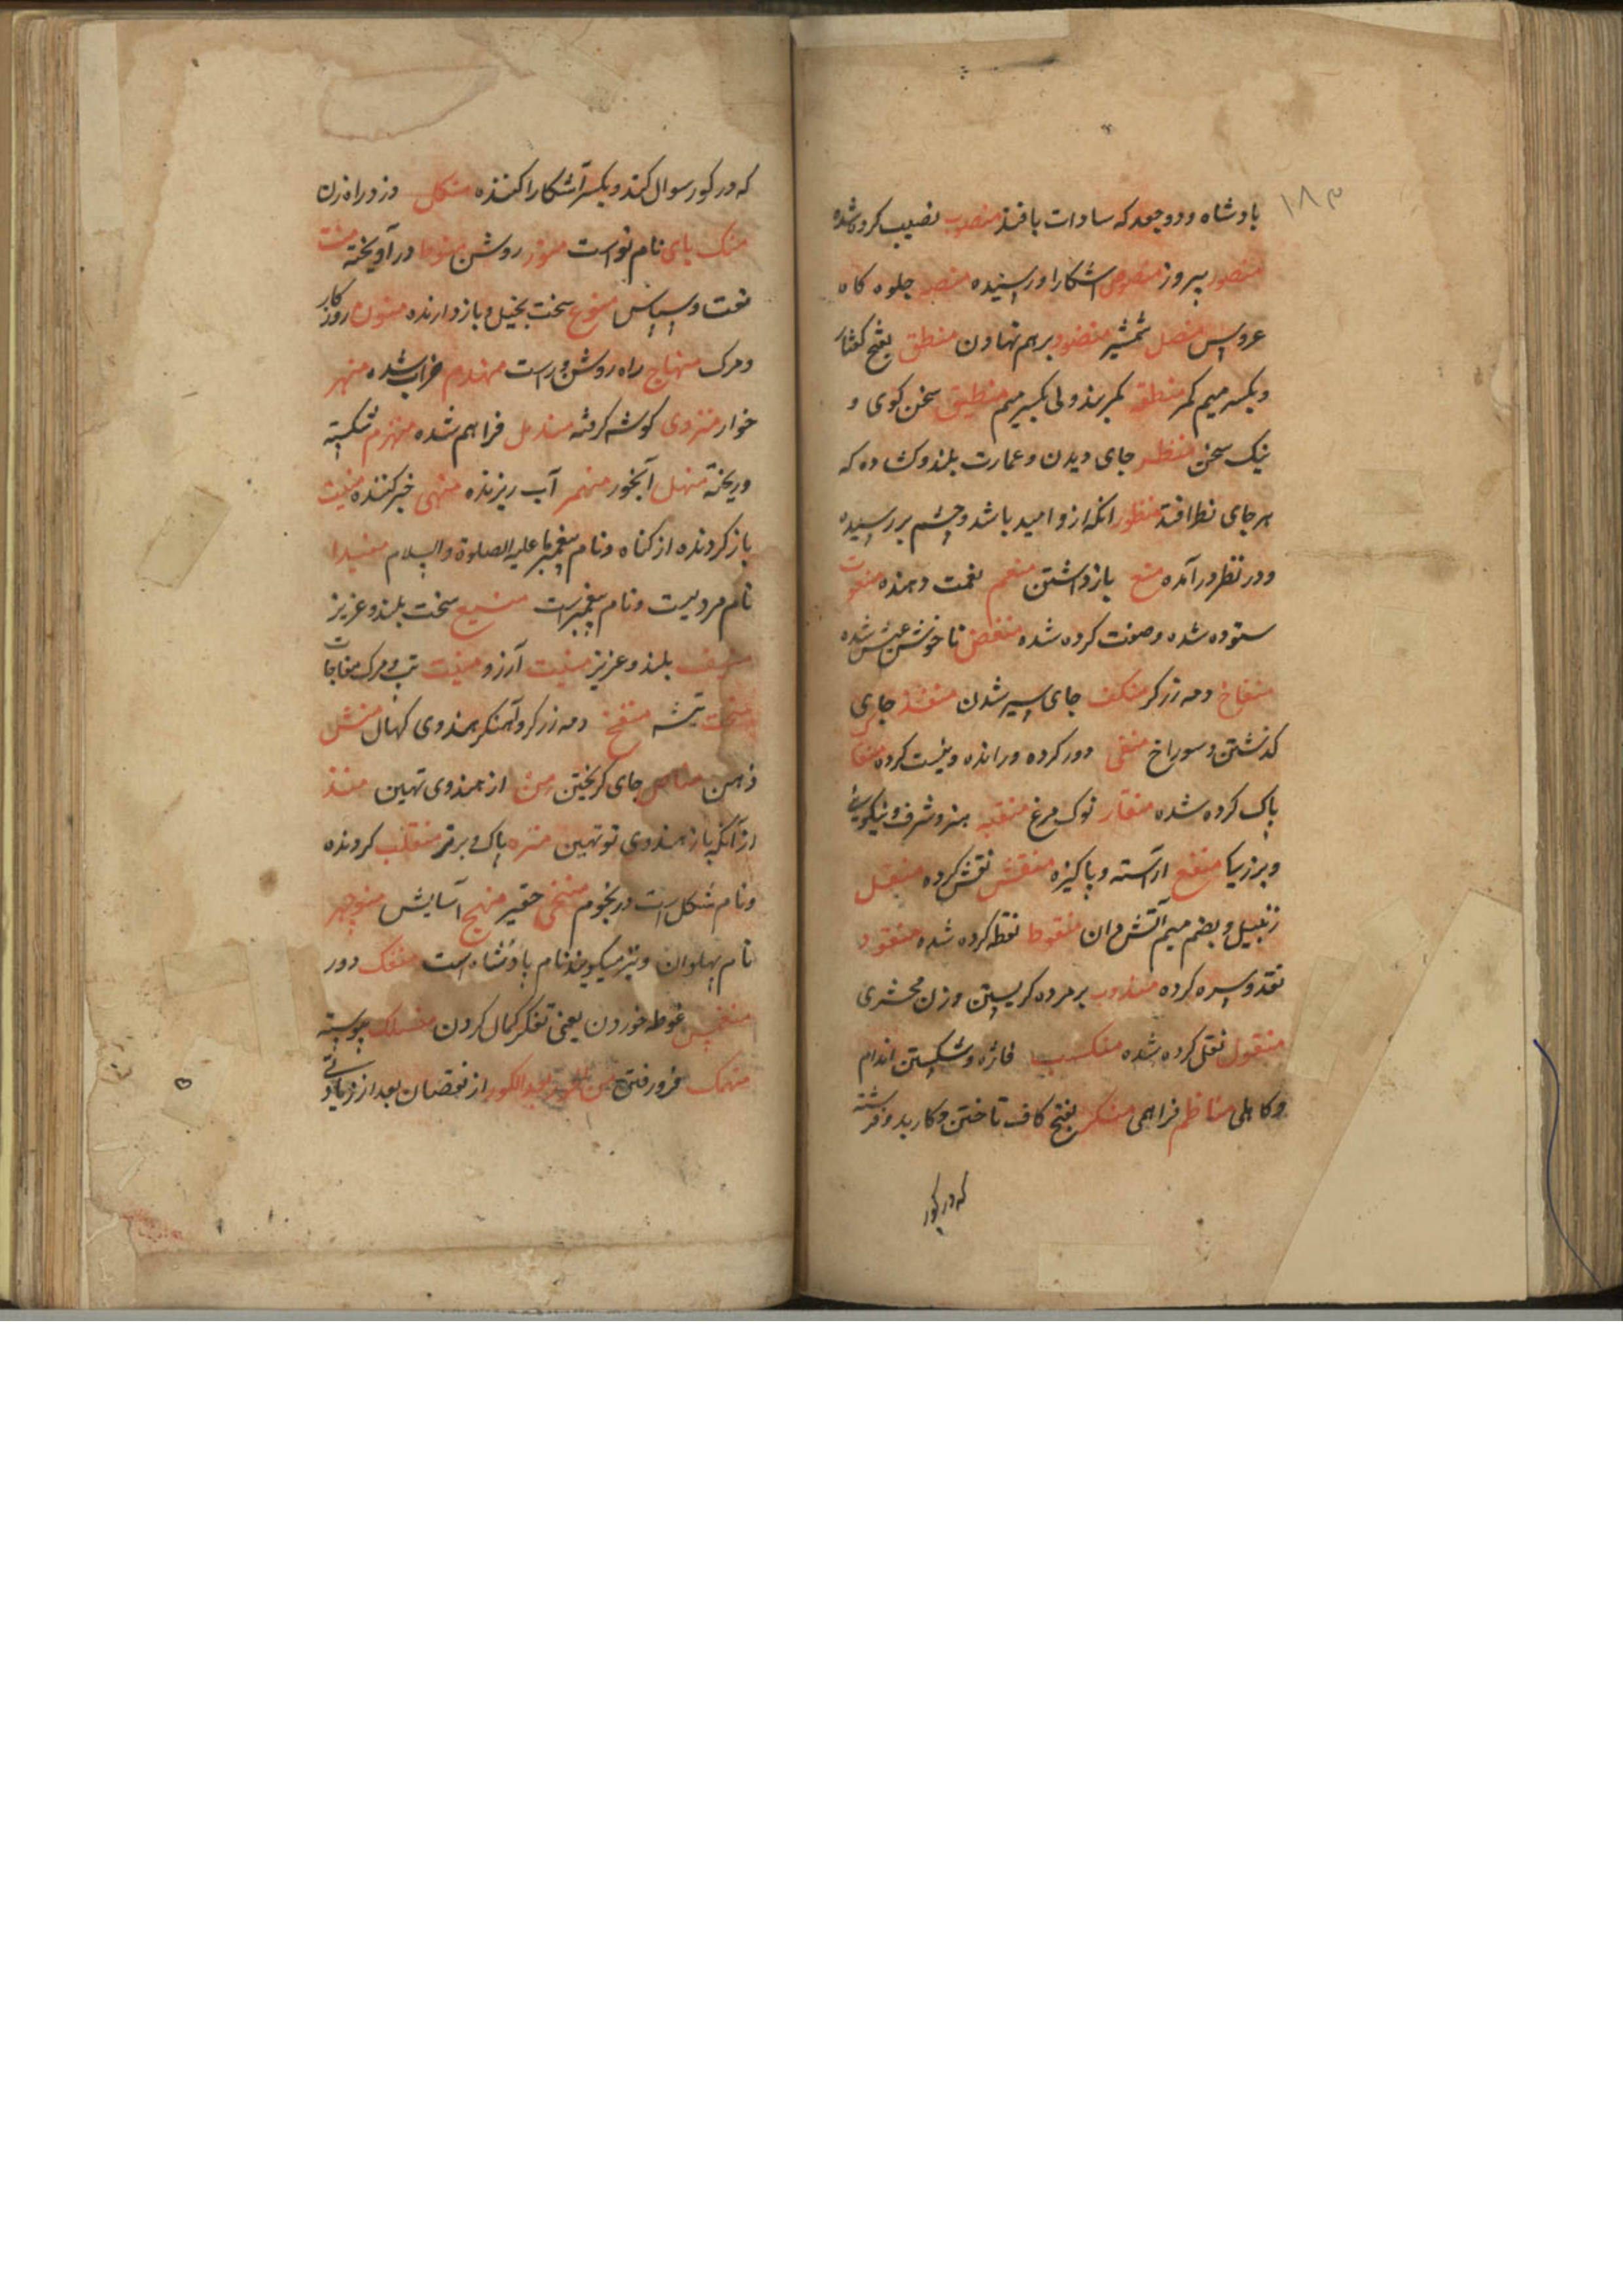 ١٨٣
بادشاه ودو جعد که سادات بافند منصوب نصیب کرده شده
منصور پیروز منصوص اشکارا ورسیده منصه جلوه کاه
عروس منصل شمشیر منضود برهم نهادن منطق بفتح کفتار
وبکسر میم کمر منطقه کمربند ولی بکسر میم منطیق سخن کوی و
نیک سخن منظر جای دیدن وعمارت بلند وکشاده که
هر جای نظر افتد منظور انکه ازو امید باشد وچشم بر رسیده
ودر نظر درآمده منع بازداشتن منعم نعمت دهنده منعوت
ستوده شده وصفت کرده شده منغض ناخوش عیش شده
منفاخ دمه زرکر منکف جای سپر شدن منفذ جای
کذشتن وسوراخ منفی دور کرده ورانده ونیست کرده منقا
پاک کرده شده منقار نوک مرغ منقبه هنر وشرف ونیکویی
وبرزیبا منقح اراسته وپاکیزه منقش نقش کرده منقل
زنبیل وبضم میم آتش دان منقوط نقطه کرده شده منقود
نقد وسره کرده مندوب بر مرده کریستن وزن محشری
منقول نقل کرده شده منکسب فاژه وشکستن اندام
وکاهلی مناظم فراهمی منکر بفتح کاف ناختن وکار بد وفرشته
که در کور
که در کور سوال کند وبکسر آشکارا کننده منکل دزد راه زن
منک بای نام نواست منوز روشن منوط درآویخته منت
نعت وسپاس منوع سخت بخیل وبازدارنده منون روزکار
ومرک منهاج راه روشن وراست منهدم خراب شده منهر
خوار منزوی کوشه کرفته مندمل فراهم شده منهزم شکسته
وریخته منهل آبخور منهمر آب ریزنده منهی خبر کننده منیت
باز کردنده از کناه ونام پیغمبر ما علیه الصلوة والسلام منیدا
نام مردیست ونام پیغمبر است منیع سخت بلند وعزیز
منیف بلند وعزیز منیت آرزو منیت تب ومرک مفاجات
منحت تیشه منفخ دمه زرکر وآهنکر هندوی کهال منش
ذهن مناص جای کریختن من از هندوی تهین منذ
از آنکه باز هندوی تو تهین منزه پاک وبرتر منقلب کردنده
ونام شکل است در نجوم منخی حقیر منهج آسایش منوچهر
نام پهلوان ونیز میکویند نام بادشاه است منفک دور
منغمس غوطه خوردن یعنی تفکر کمال کردن منسلک پیوسته
منهمک فرو رفتن من الحور بعد الکور از نقصان بعد از زیادتی